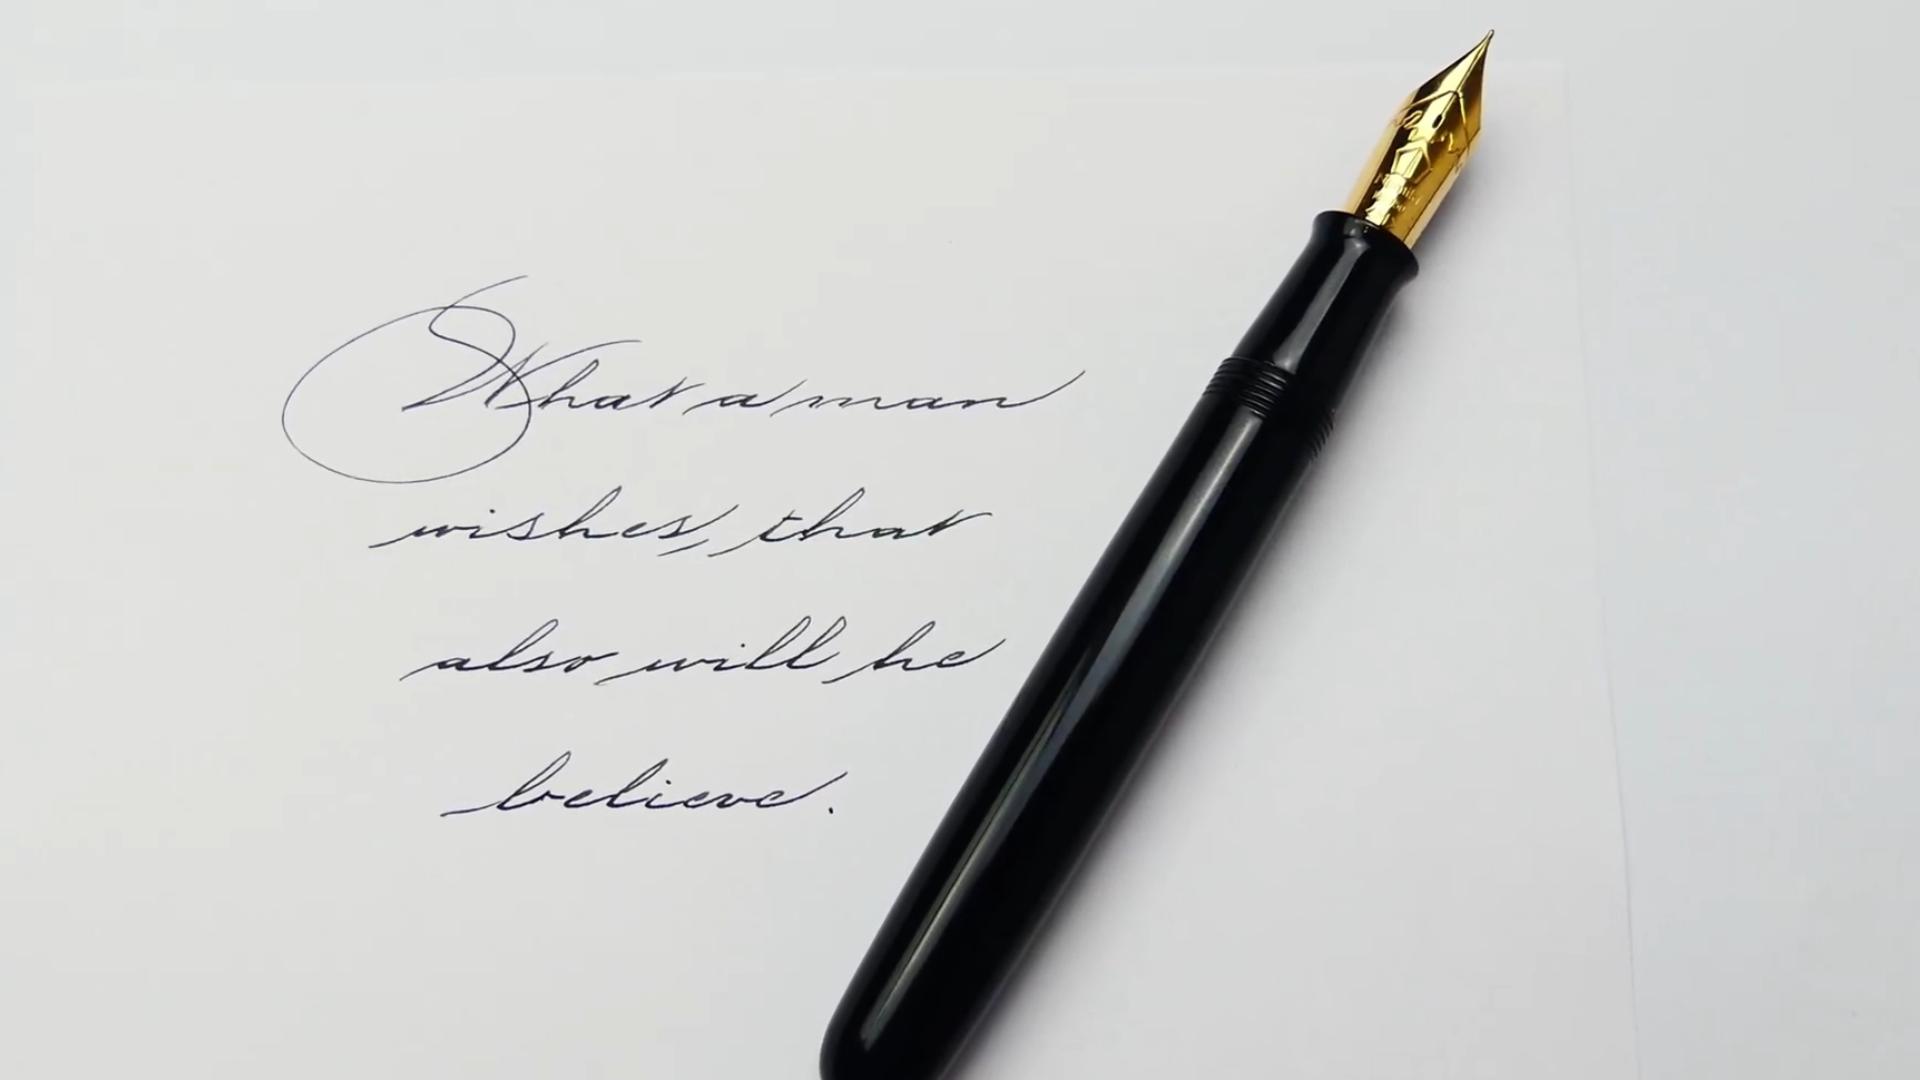 What a man
wishes, that
also will he
believe.